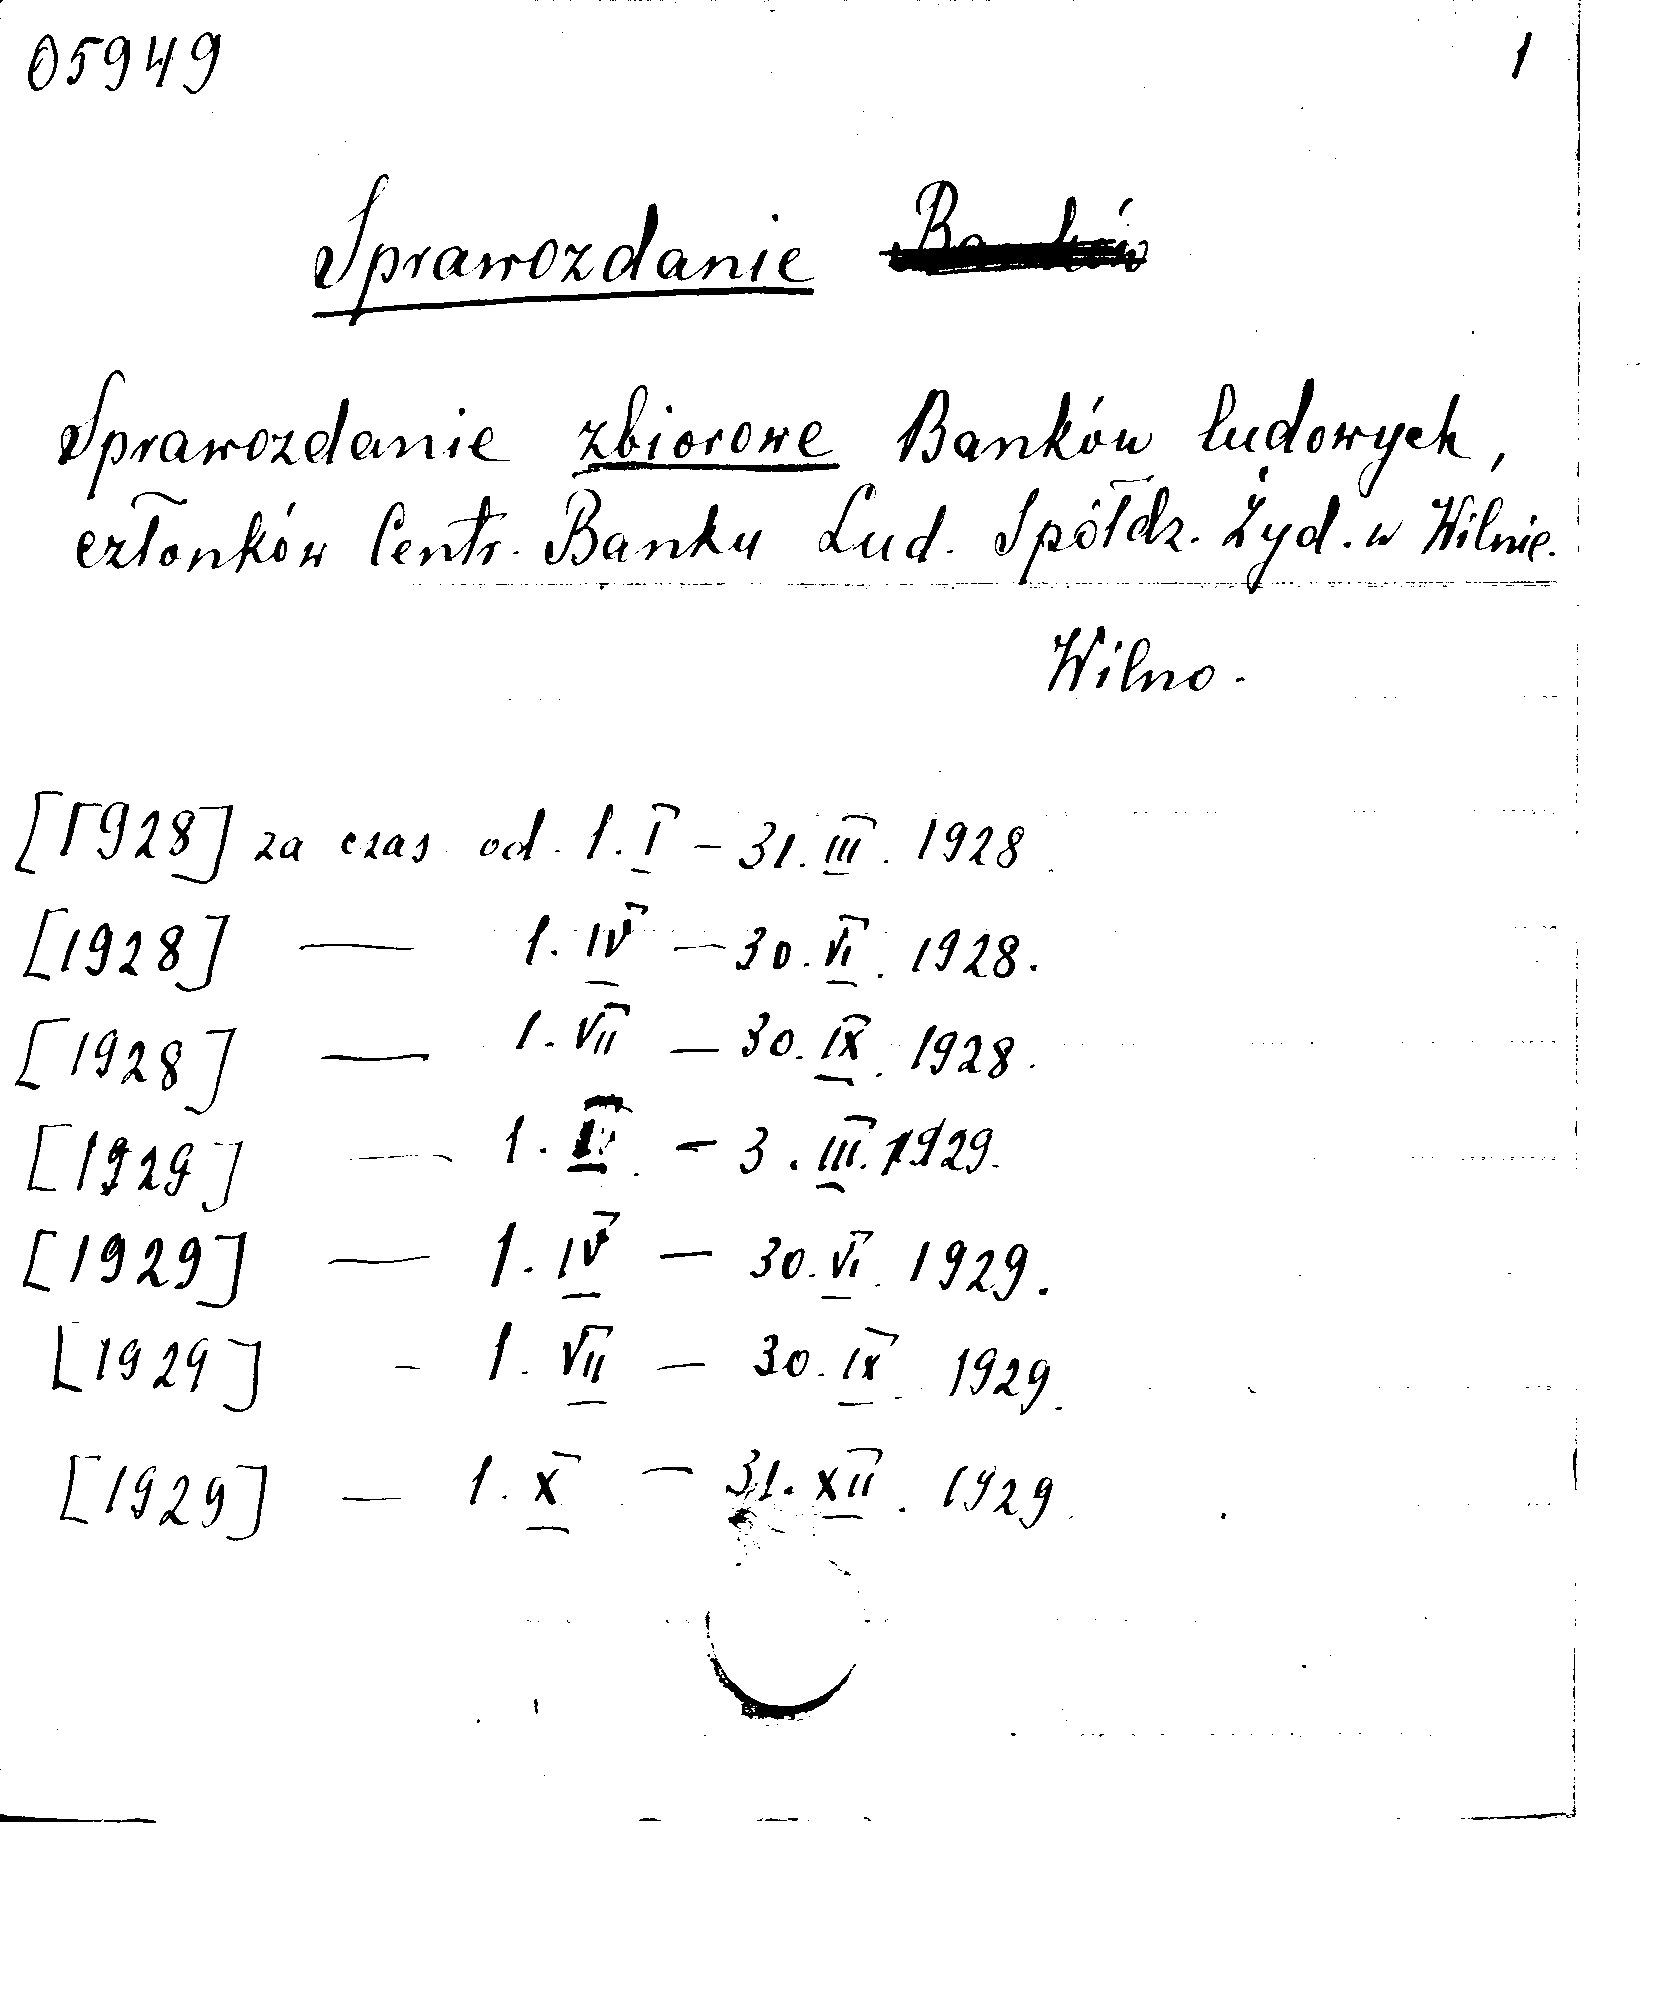 05949 1
Sprawozdanie Banków
Sprawozdanie zbiorowe Banków ludowych,
członków Centr. Banku Lud. Spółdz. Żyd. w Wilnie.
Wilno.
[1928] za czas od. 1. I – 31. III. 1928
[1928] — 1. IV — 30. VI. 1928.
[1928] — 1. VII — 30. IX. 1928.
[1929] — 1. – 3. III. 1929.
[1929] — 1. IV — 30. VI. 1929.
[1929] - 1. VII — 30. IX. 1929.
[1929] — 1. X — 31. XII. 1929